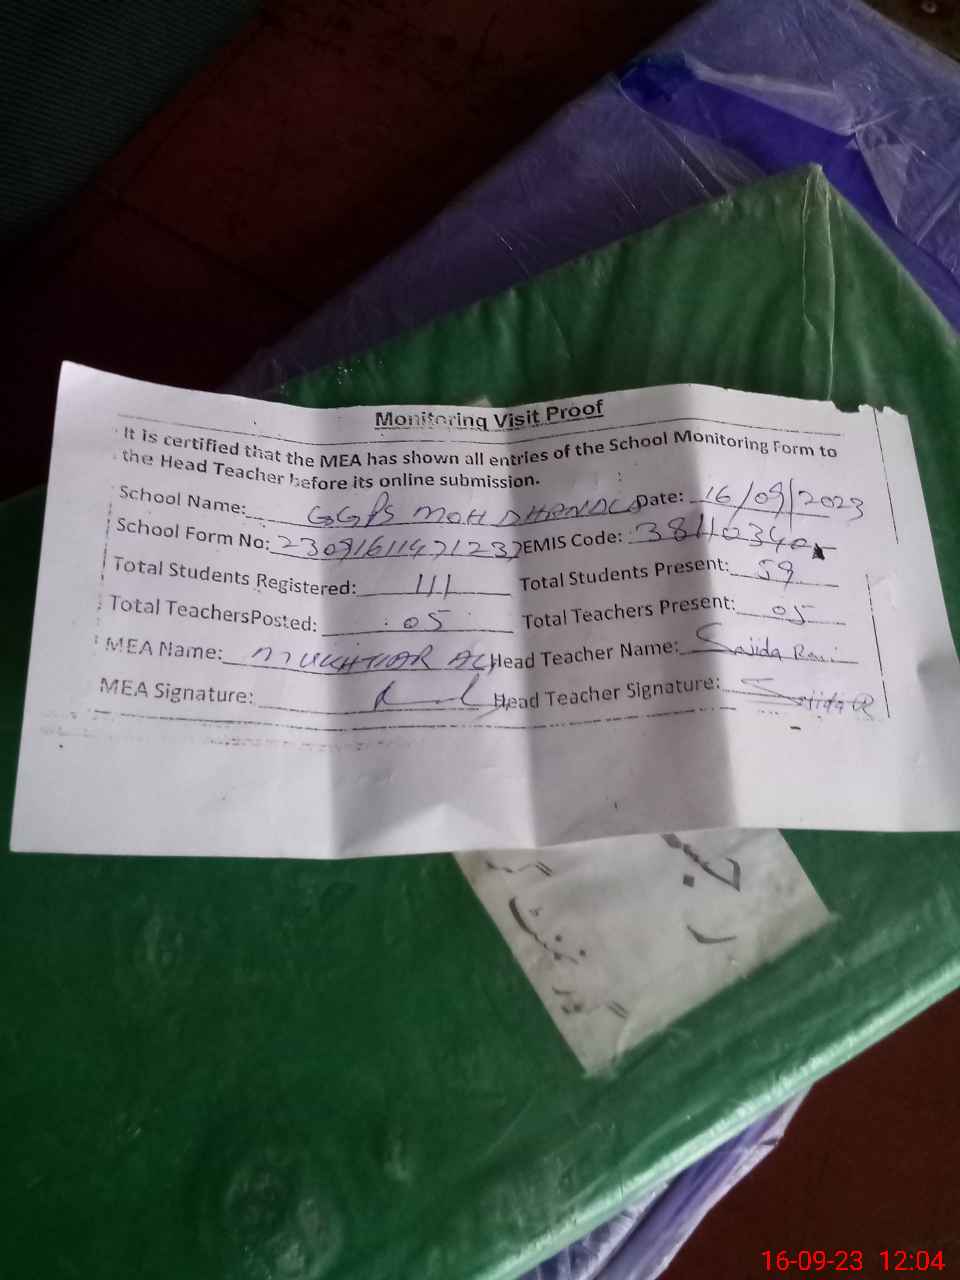 Monitoring Visit Proof
It is certified that the MEA has shown all entries of the School Monitoring Form to
the Head Teacher before its online submission.
School Name: GGPS MOH Date: 16/09/2023
School Form No: EMIS Code:
Total Students Registered: 111 Total Students Present: 59
Total TeachersPosted: 05 Total Teachers Present: 05
MEA Name: MUKHTIAR ALI Head Teacher Name: Sajida
MEA Signature: Head Teacher Signature: Sajida
گورنمنٹ
16-09-23 12:04